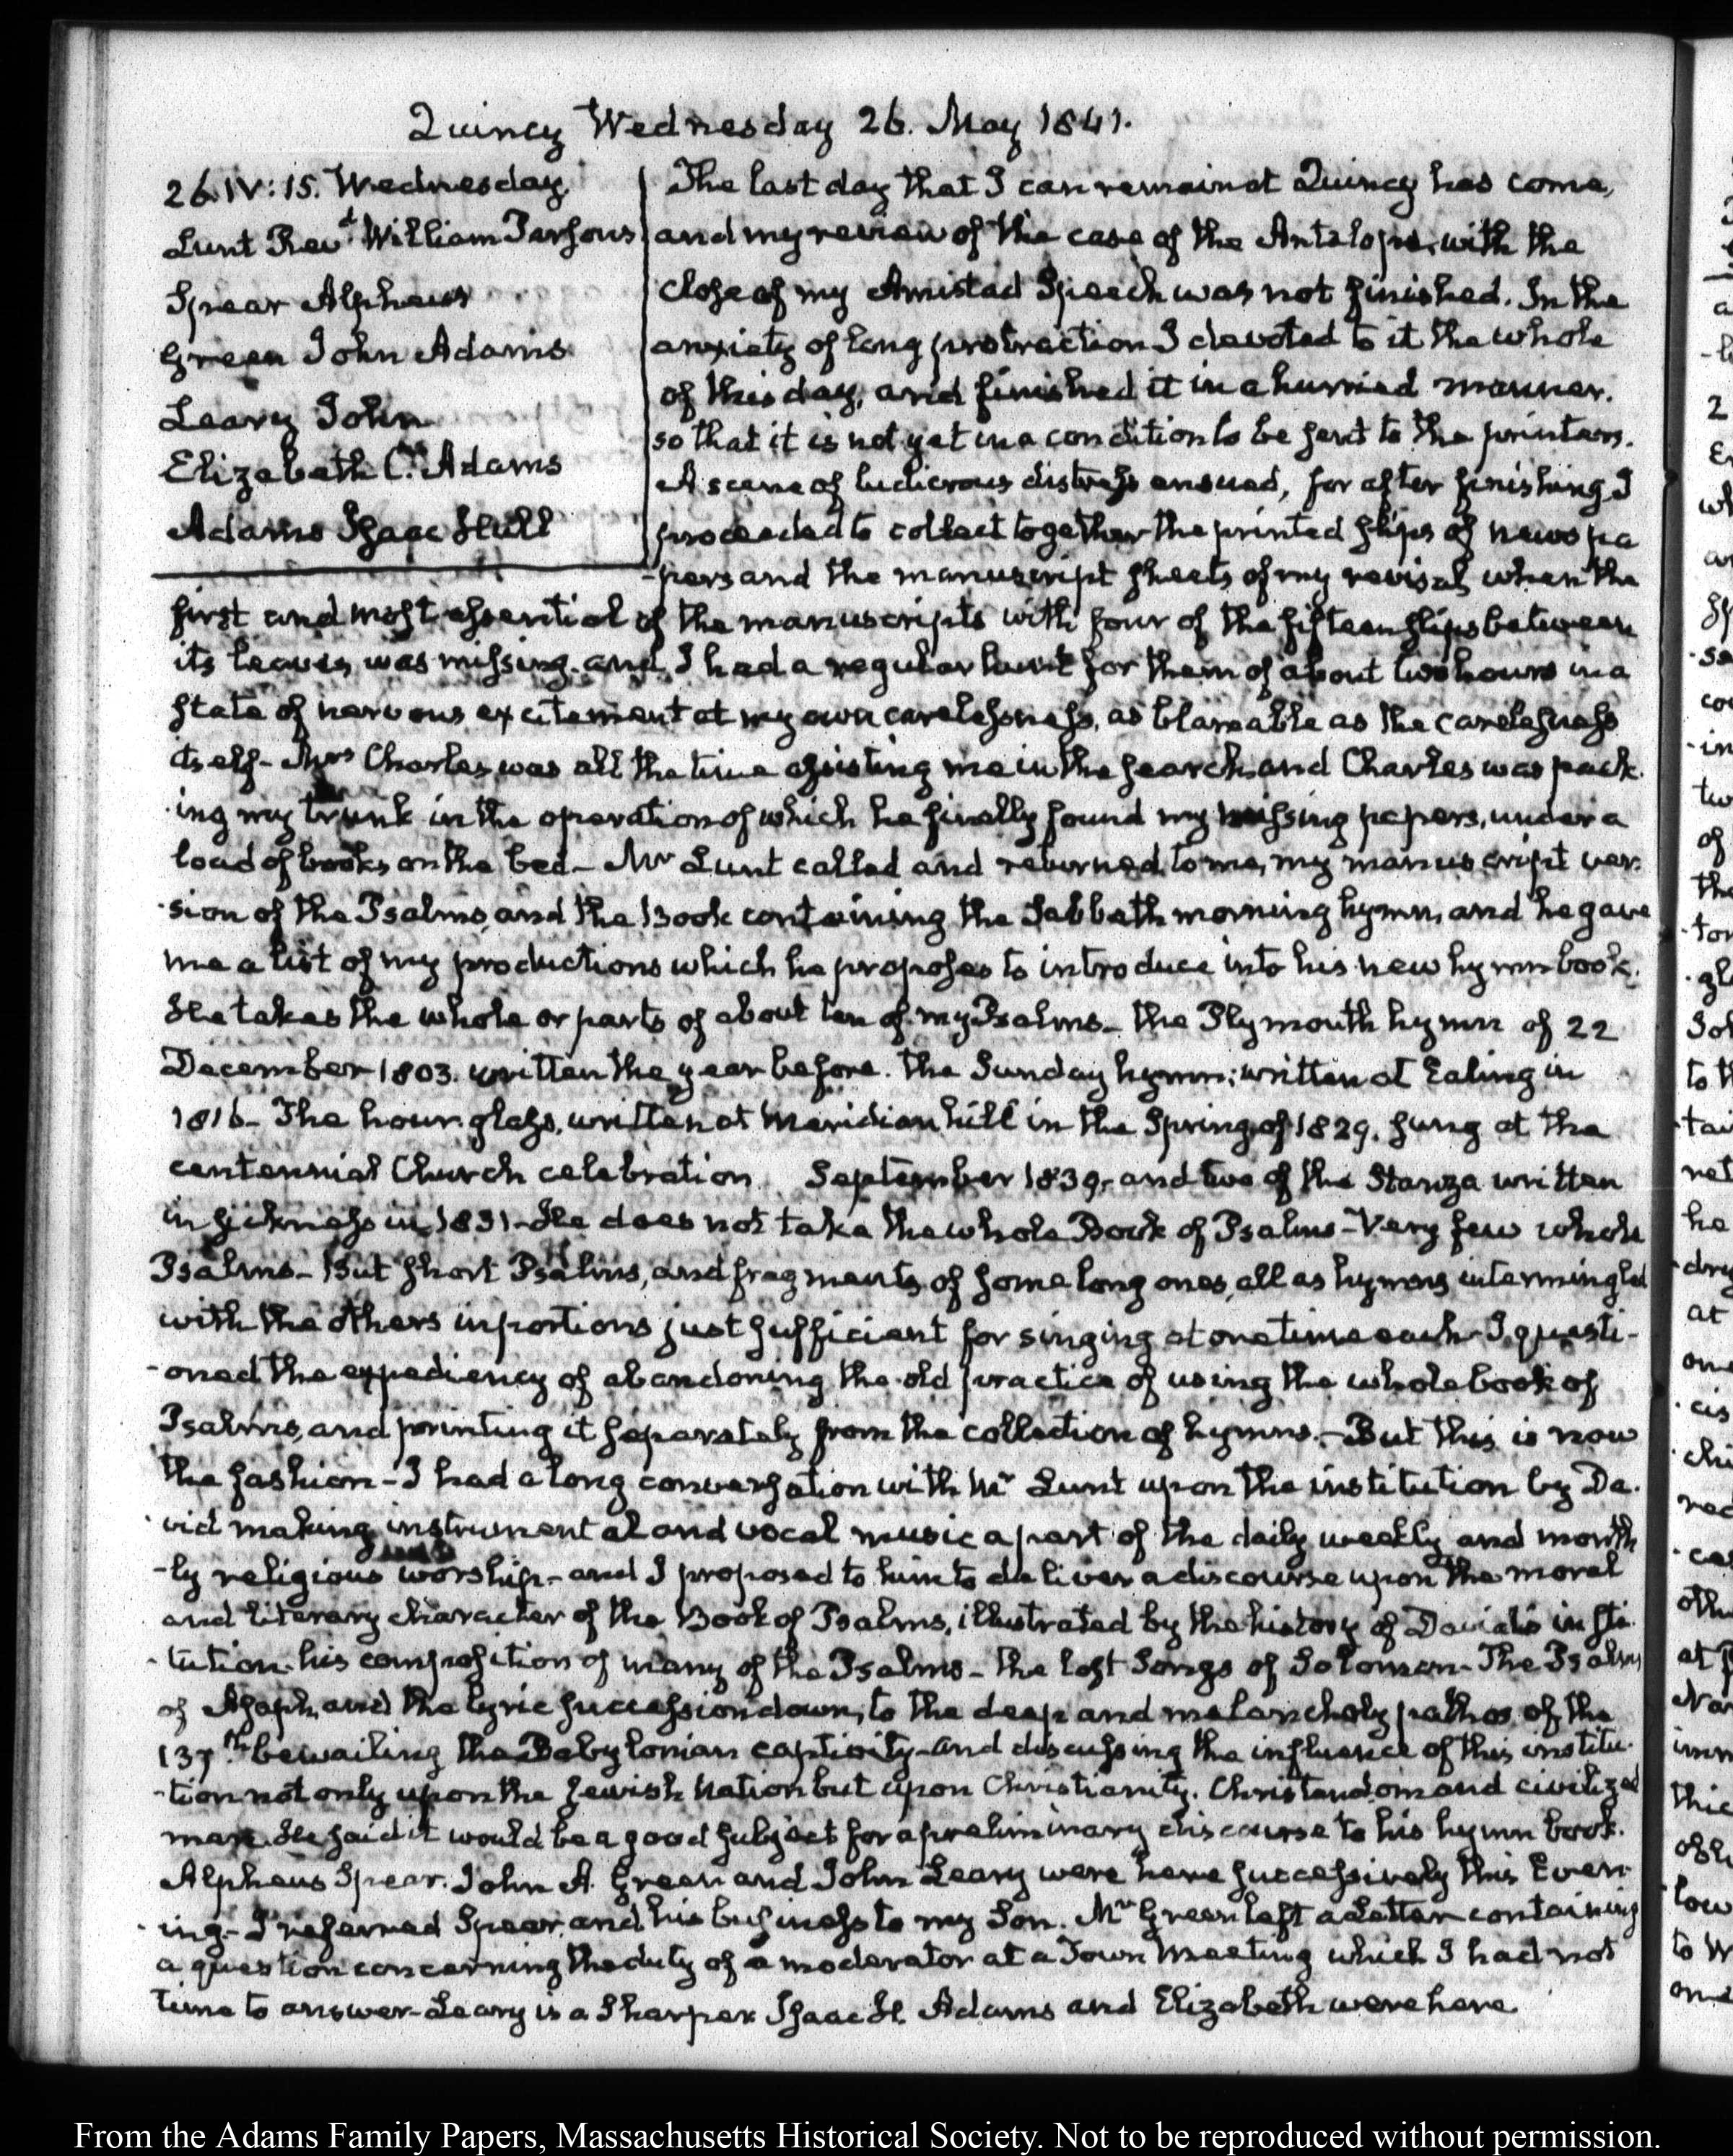 Quincy Wednesday 26. May 1841.
26. IV:15. Wednesday
Lunt Revd William Parsons
Spear Alpheus
Green John Adams
Leary John
Elizabeth C. Adams
Adams Isaac Hull
The last day that I can remain at Quincy has come,
and my review of the case of the Antelope, with the
close of my Amistad Speech was not finished. In the
anxiety of long protraction I devoted to it the whole
of this day, and finished it in a hurried manner.
so that it is not yet in a condition to be sent to the printers.
A scene of ludicrous distress ensued, for after finishing I
proceeded to collect together the printed slips of newspa
-pers and the manuscript sheets of my revisal when the
first and most essential of the manuscripts with four of the fifteen slips between
its leaves, was missing. and I had a regular hunt for them of about two hours in a
state of nervous excitement at my own carelessness, as blameable as the carelessness
itself- Mrs Charles was all the time assisting me in the search, and Charles was pack-
-ing my trunk in the operation of which he finally found my missing papers, under a
load of books on the bed- Mr Lunt called and returned to me, my manuscript ver-
-sion of the Psalms, and the Book containing the Sabbath morning hymn, and he gave
me a list of my productions which he proposes to introduce into his new hymn book.
He takes the whole or parts of about ten of my Psalms- the Plymouth hymn of 22
December 1803. written the year before. the Sunday hymn; written at Ealing in
1816- The hour-glass, written at Meridian hill in the Spring of 1829. sung at the
centennial Church celebration September 1839, and two of the Stanza written
in sickness in 1831- He does not take the whole Book of Psalms- Very few whole
Psalms- But short Psalms, and fragments of some long ones, all as hymns intermingled
with the others in portions just sufficient for singing at one time each- I questi-
-oned the expediency of abandoning the old practice of using the whole book of
Psalms, and printing it separately from the collection of hymns.- But this is now
the fashion- I had a long conversation with Mr Lunt upon the institution by Da-
-vid making instrumental and vocal music a part of the daily weekly and month
-ly religious worship- and I proposed to him to deliver a discourse upon the moral
and literary character of the Book of Psalms, illustrated by the history of David's insti-
-tution. his composition of many of the Psalms- the lost Songs of Solomon- The Psalms
of Asaph, and the lyric succession down, to the deep and melancholy pathos of the
137th bewailing the Babylonian captivity- and discussing the influence of this institu-
-tion not only upon the Jewish Nation but upon Christianity. Christendom and civilized
man. He said it would be a good subject for a preliminary discourse to his hymn book.
Alpheus Spear. John A. Green and John Leary were here successively this Even-
-ing- I referred Spear and his business to my Son. Mr Green left a Letter containing
a question concerning the duty of a moderator at a Town Meeting which I had not
time to answer- Leary is a Sharper Isaac H. Adams and Elizabeth were here
From the Adams Family Papers, Massachusetts Historical Society. Not to be reproduced without permission.